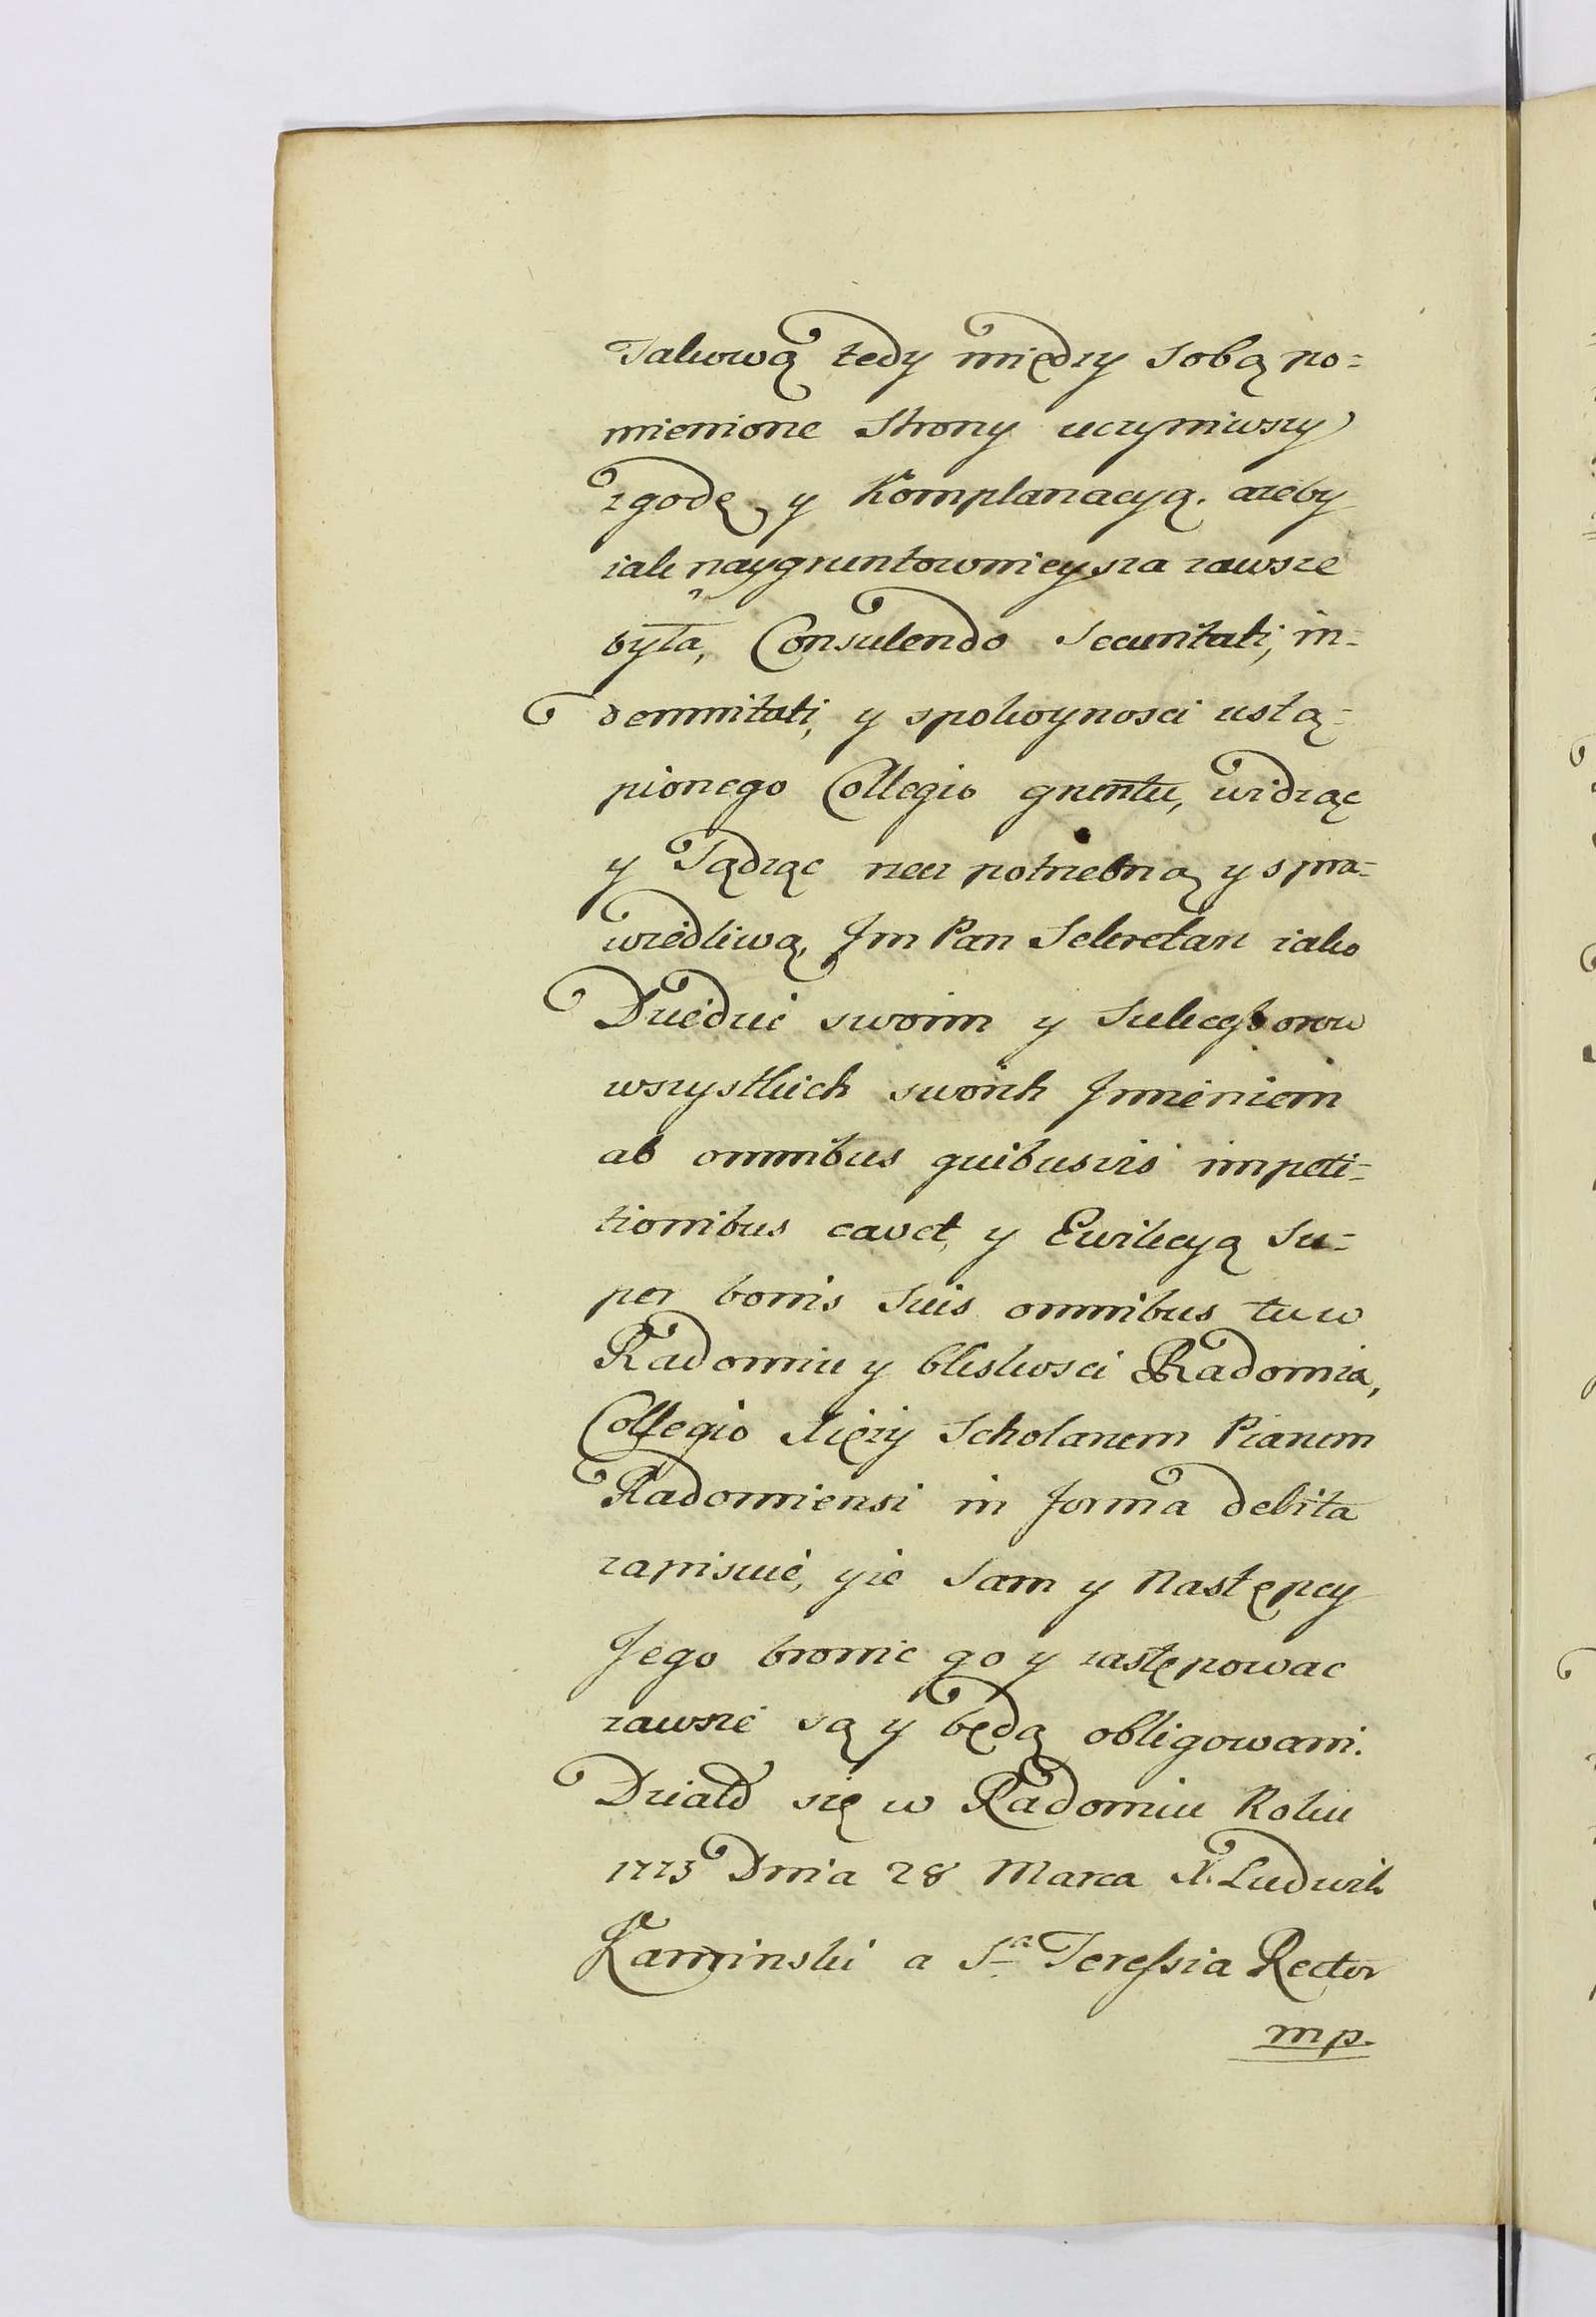 Takową tedy między sobą po=
mienione Strony uczyniwszy
zgodę y Komplanacyą. azeby
iak naygruntownieysza zawsze
była, Consulendo Securitati, in=
demnitati, y spokoynosci ustą=
pionego Collegio gruntu, widząc
y Sądząc rzecz potrzebną y spra=
wiedliwą, Jm Pan Sekretarz iako
Dziedzic swoim y Sukceßorow
wszystkich swoich Jmieniem
ab omnibus quibusvis impeti=
tionibus cavet, y Ewikcyą Su=
per bonis Suis omnibus tu w
Radomiu y bliskosci Radomia,
Collegio Xięży Scholarum Piarum
Radomiensi in forma debita
zapisuie, yże Sam y Następcy
Jego bronic go y zastępowac
zawsze są y będą obligowani.
Działo się w Radomiu Roku
1773 Dnia 28 Marca X. Ludwik
Kaminski a S<sup>a</sup> Tereßia Rector
mp.